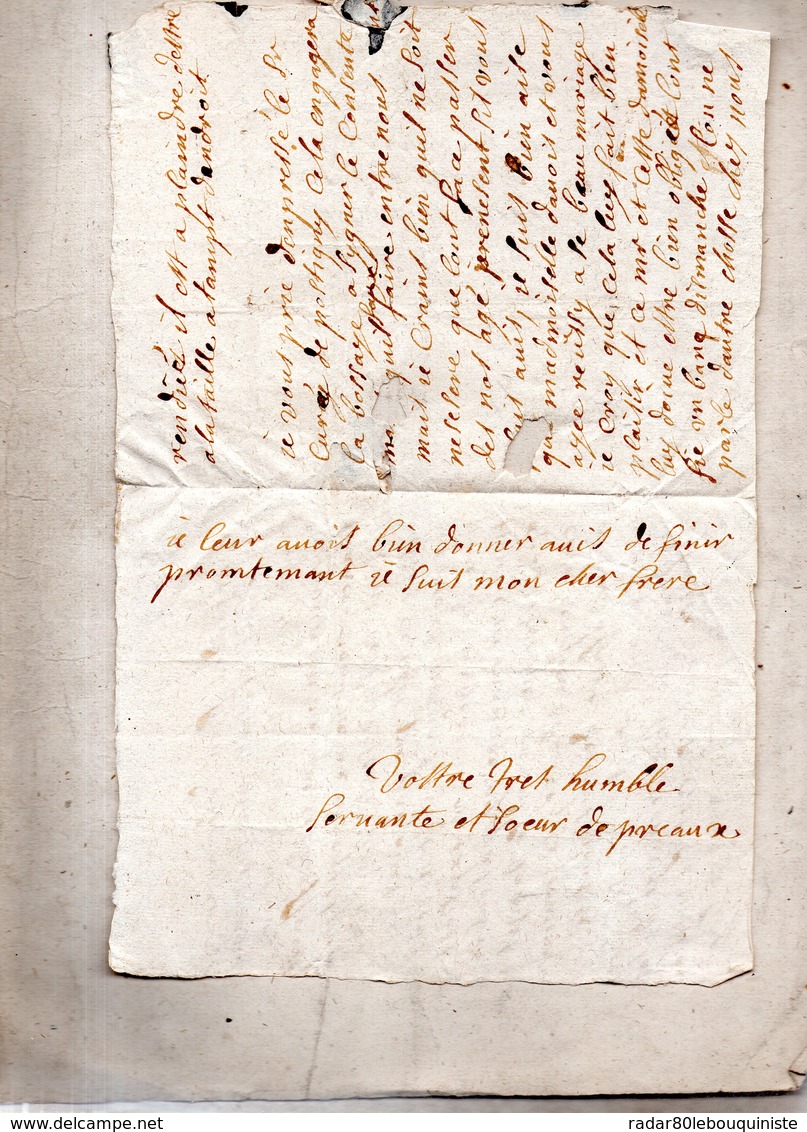 rendréé il est a plaindre destre
a la taille a tampt dandroit
ie vous prie danpressé le Sr
Curéé de postigny cela engagera
la bossaye a sygner le Consente
ma quil faire entre nous
mais ie Crains bien quil ne soit
neselere que lont face passer
des nos agé presnesent Et vous
suit auis, ie suis bien aise
que madmoiselle danois et vous
ayee reussy a se beau mariage
ie croy que cela luy fait bien
plaisir et ce mr et cette damoiselle
luy doiue estre bien obligé lont
fie un banq dismanche lonne
parle dautre chosse chez nous
ie leur auois bien donner auis de finir
promtemant ie suit mon cher frere
Vostre tret humble
seruante et soeur de preaux
www.delcampe.net
radar80lebouquiniste